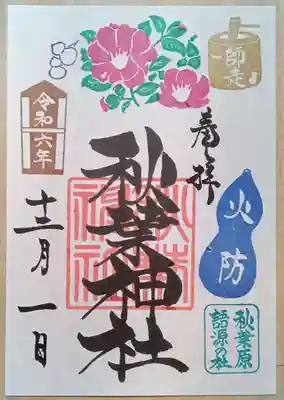 師走
奉拝
火防
秋葉原
語源の社
秋葉神社
令和
六年
十二月一日